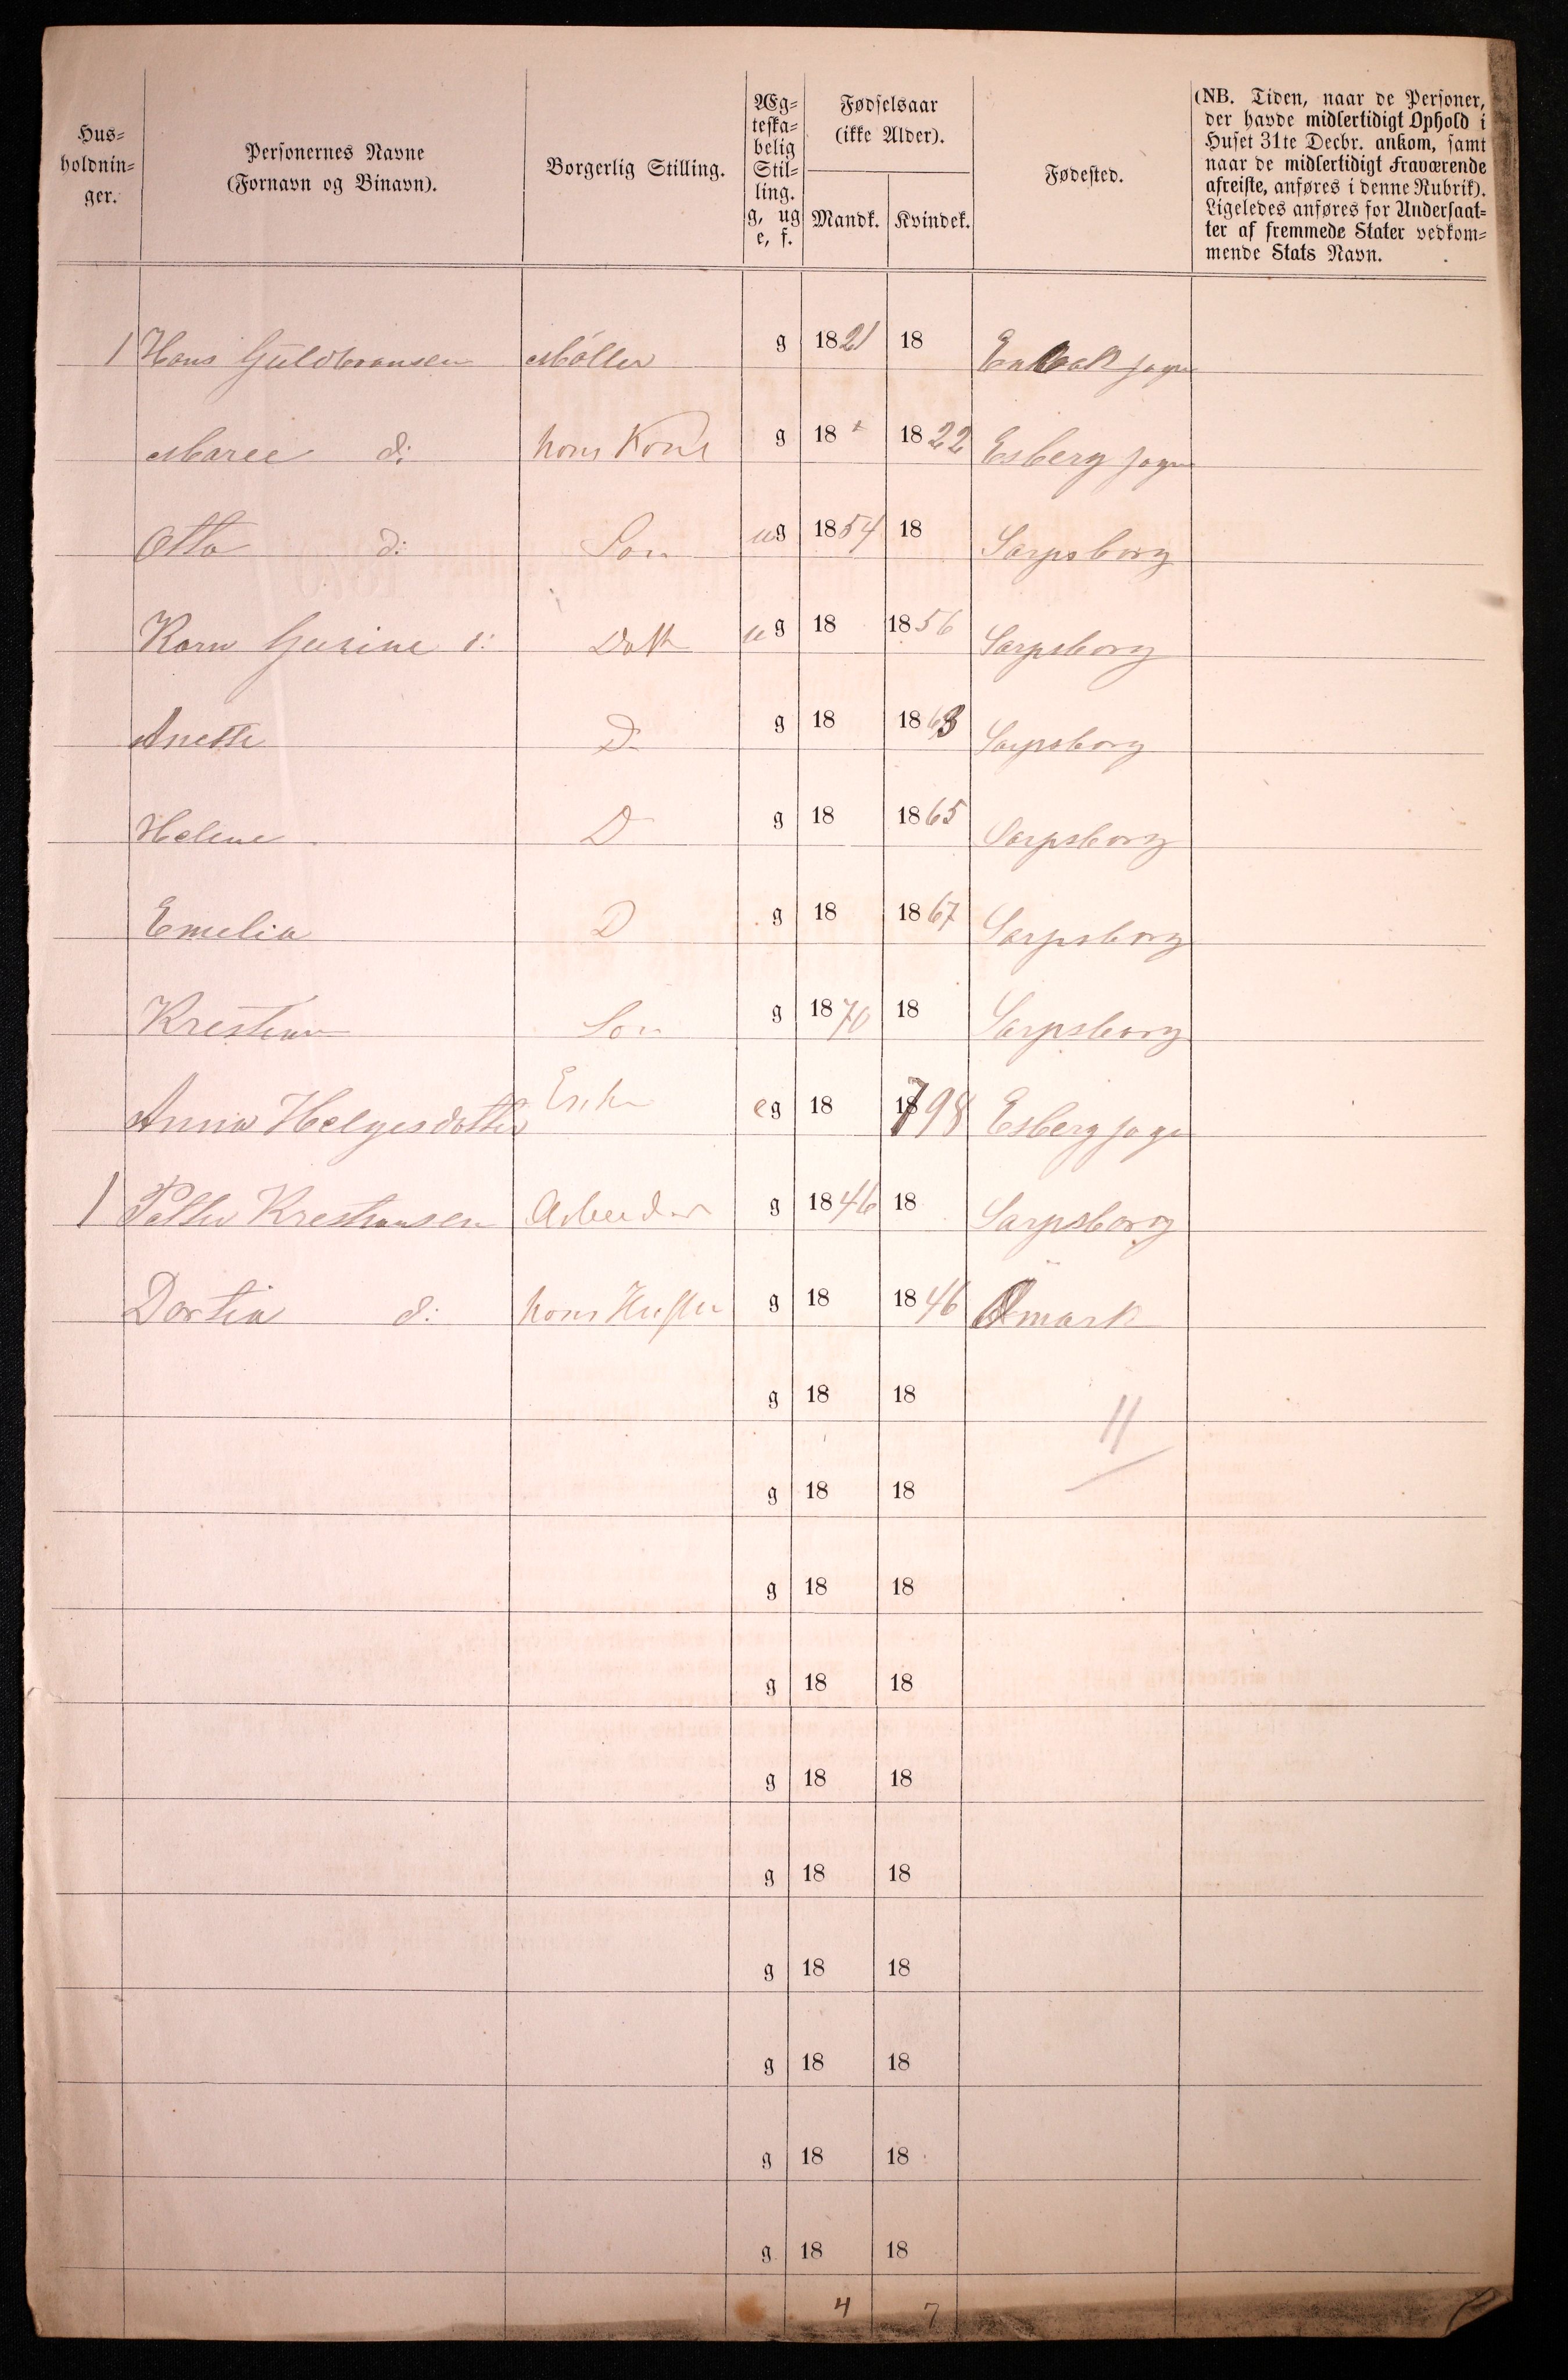 Hus-
holdnin-
ger.
Personernes Navne
(Fornavn og Binavn).
Borgerlig Stilling.
Æg-
teska-
belig
Stil-
ling.
g, ug
e, f.
Fødselsaar
(ikke Alder).
Mandk. Kvindek.
Fødested.
(NB. Tiden, naar de Personer,
der havde midlertidigt Ophold i
Huset 31te Decbr. ankom, samt
naar de midlertidigt Fraværende
afreiste, anføres i denne Rubrik).
Ligeledes anføres for Undersaat-
ter af fremmede Stater vedkom-
mende Stats Navn.
1 Hans Guldbransen Møller g 1821 18 Enebak sogn
Maree d: hans Kone g 18 1822 Esberg sogn
Otto d: Søn ug 1854 18 Sarpsborg
Karn Gusine d: Datt ug 18 1856 Sarpsborg
Anette D g 18 1863 Sarpsborg
Helene D g 18 1865 Sarpsborg
Emelia D g 18 1867 Sarpsborg
Krestian Søn g 1870 18 Sarpsborg
Anna Helgesdatter Enke eg 18 1798 Esberg sogn
1 Petter Krestiansen Arbeider g 1846 18 Sarpsborg
Dortia d: hans Hustru g 18 1846 Ømark
g 18 18 11
g 18 18
g 18 18
g 18 18
g 18 18
g 18 18
g 18 18
g 18 18
g 18 18
g 18 18
4 7